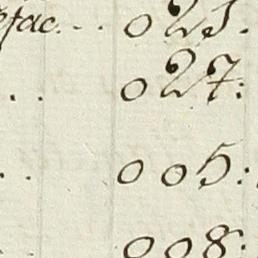 efac... 023.
.. 027:
.. 005:
. 008: